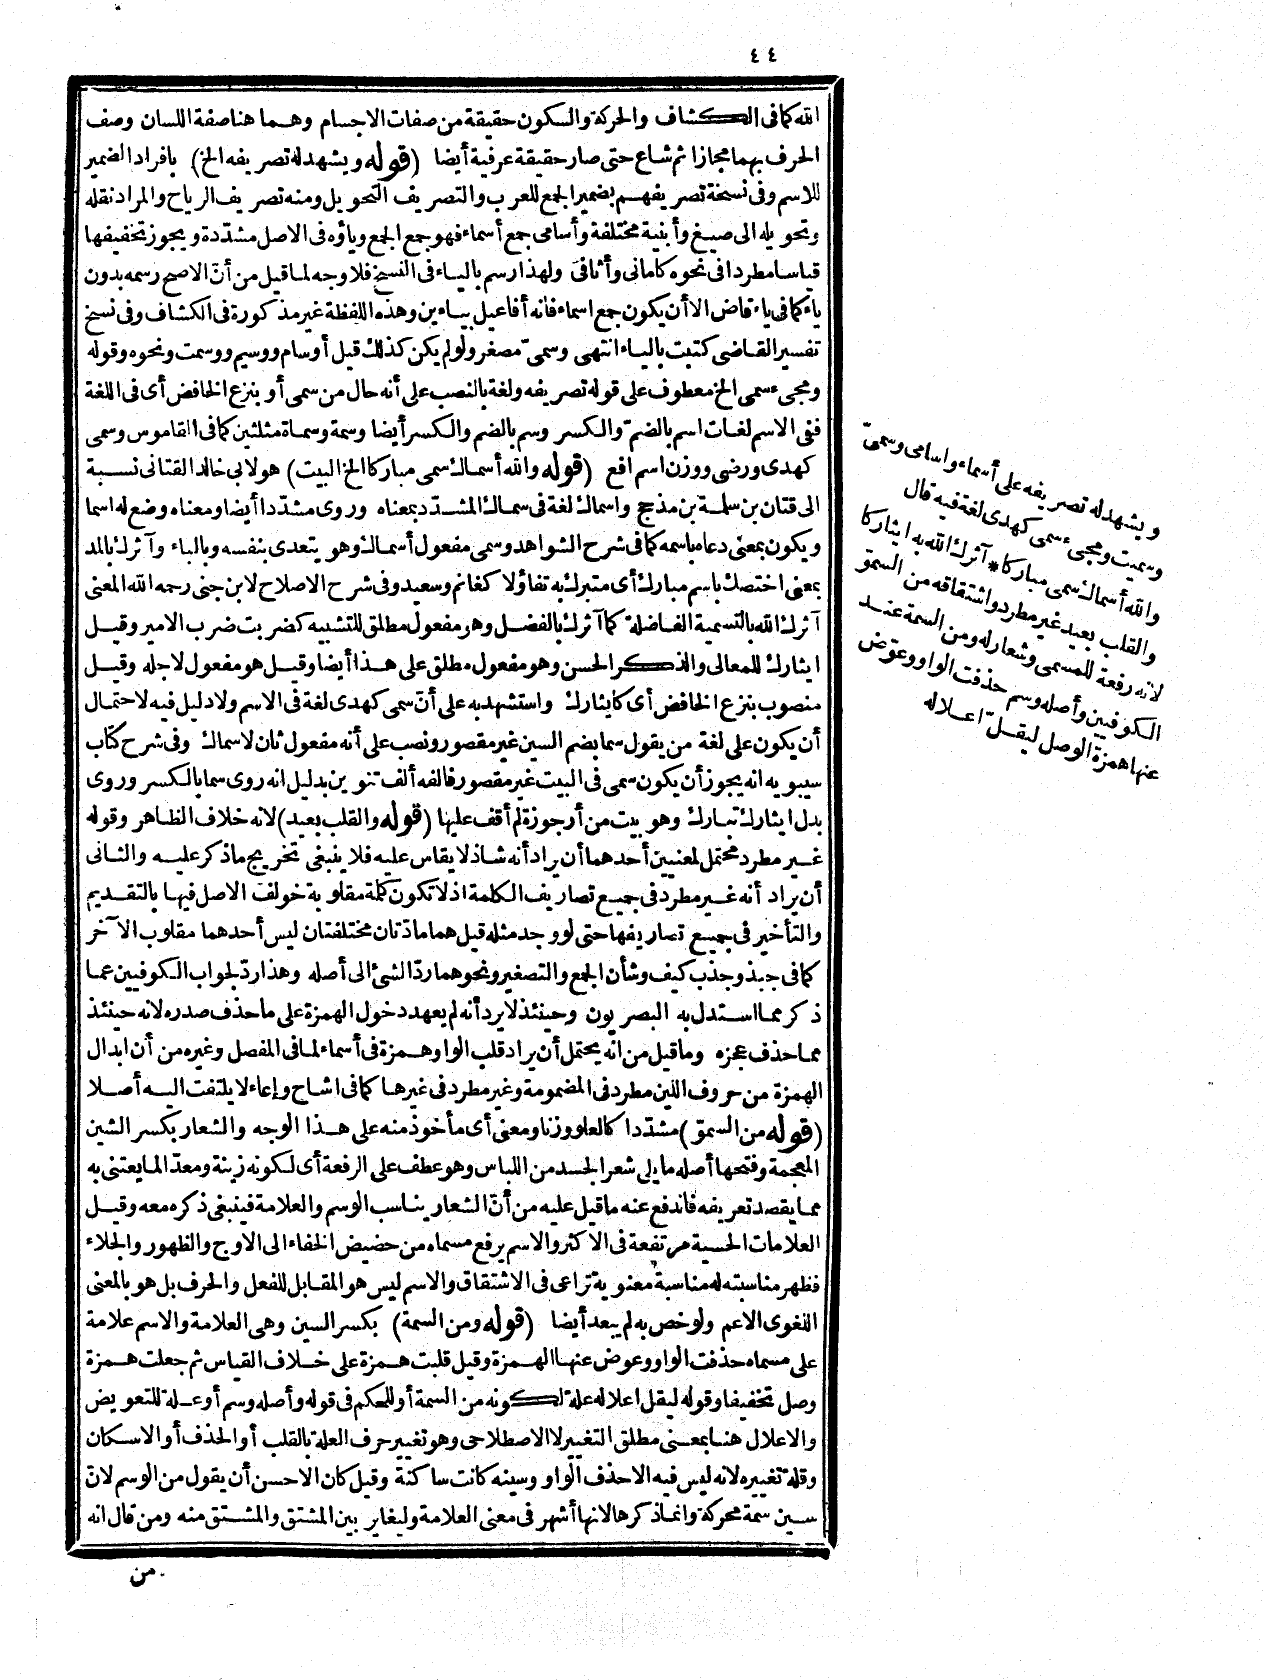 ٤٤
الله كما فى الكشاف والحركة والسكون حقيقة من صفات الاجسام وهما هنا صفة اللسان وصف
الحرف بهما مجازا ثم شاع حتى صار حقيقة عرفية أيضا (قوله ويشهد له تصريفه الخ) بافراد الضمير
للاسم وفى نسخة تصريفهم بضمير الجمع للعرب والتصريف التحويل ومنه تصريف الرياح والمراد نقله
وتحويله الى صيغ وأبنية مختلفة وأسامى جمع أسماء فهو جمع الجمع وياؤه فى الاصل مشدّدة ويجوز تخفيفها
قياسا مطردا فى نحوه كامانى وأثافى ولهذا رسم بالياء فى النسخ فلا وجه لما قيل من أنّ الاصح رسمه بدون
ياء كما فى ياء قاض الا أن يكون جمع اسماء فانه أفاعيل بياءين وهذه اللفظة غير مذكورة فى الكشاف وفى نسخ
تفسير القاضى كتبت بالياء انتهى وسمىّ مصغر ولو لم يكن كذلك قيل أوسام ووسيم ووسمت ونحوه وقوله
ومجىء سمى الخ معطوف على قوله تصريفه ولغة بالنصب على أنه حال من سمى أو بنزع الخافض أى فى اللغة
ففى الاسم لغات اسم بالضمّ والكسر وسم بالضم والكسر أيضا وسمة وسماة مثلثين كما فى القاموس وسمى
كهدى ورضى ووزن اسم افع (قوله والله أسماك سمى مباركا الخ البيت) هو لابى خالد القنانى نسبة
الى قنان بن سلمة بن مذحج واسماك لغة فى سماك المشدّد بمعناه وروى مشدّدا أيضا ومعناه وضع له اسما
ويكون بمعنى دعاه باسمه كما فى شرح الشواهد وسمى مفعول أسماك وهو يتعدى بنفسه وبالباء وآثرك بالمد
بمعنى اختصك باسم مبارك أى متبرك به تفاؤلا كغانم وسعيد وفى شرح الاصلاح لابن جنى رحمه الله المعنى
آثرك الله بالتسمية الفاضلة كما آثرك بالفضل وهو مفعول مطلق للتشبيه كضربت ضرب الامير وقيل
ايثارك للمعالى والذكر الحسن وهو مفعول مطلق على هذا أيضا وقيل هو مفعول لاجله وقيل
منصوب بنزع الخافض أى كايثارك واستشهد به على أنّ سمى كهدى لغة فى الاسم ولا دليل فيه لاحتمال
أن يكون على لغة من يقول سما بضم السين غير مقصور ونصب على أنه مفعول ثان لاسماك وفى شرح كتاب
سيبويه انه يجوز أن يكون سمى فى البيت غير مقصور فالفه ألف تنوين بدليل انه روى سما بالكسر وروى
بدل ايثارك تبارك وهو بيت من أرجوزة لم أقف عليها (قوله والقلب بعيد) لانه خلاف الظاهر وقوله
غير مطرد محتمل لمعنيين أحدهما أن يراد أنه شاذ لا يقاس عليه فلا ينبغى تخريج ما ذكر عليه والثانى
أن يراد أنه غير مطرد فى جميع تصاريف الكلمة اذ لا تكون كلمة مقلوبة خولف الاصل فيها بالتقديم
والتأخير فى جميع تصاريفها حتى لو وجد مثله قيل هما مادّتان مختلفتان ليس أحدهما مقلوب الآخر
كما فى جبذ وجذب كيف وشأن الجمع والتصغير ونحوهما ردّ الشئ الى أصله وهذا ردّ لجواب الكوفيين عما
ذكر مما استدل به البصريون وحينئذ لا يرد أنه لم يعهد دخول الهمزة على ما حذف صدره لانه حينئذ
مما حذف عجزه وما قيل من انه يحتمل أن يراد قلب الواو همزة فى أسماء لما فى المفصل وغيره من أن ابدال
الهمزة من حروف اللين مطرد فى المضمومة وغير مطرد فى غيرها كما فى اشاح وإعاء لا يلتفت اليه أصلا
(قوله من السموّ) مشدّدا كالعلو وزنا ومعنى أى مأخوذ منه على هذا الوجه والشعار بكسر الشين
المعجمة وفتحها أصله ما يلى شعر الجسد من اللباس وهو عطف على الرفعة أى لكونه زينة ومعدّا لما يعتنى به
مما يقصد تعريفه فاندفع عنه ما قيل عليه من أنّ الشعار يناسب الوسم والعلامة فينبغى ذكره معه وقيل
العلامات الحسية مرتفعة فى الاكثر والاسم يرفع مسماه من حضيض الخفاء الى الاوج والظهور والجلاء
فظهر مناسبته له مناسبة معنوية تراعى فى الاشتقاق والاسم ليس هو المقابل للفعل والحرف بل هو بالمعنى
اللغوى الاعم ولو خص به لم يبعد أيضا (قوله ومن السمة) بكسر السين وهى العلامة والاسم علامة
على مسماه حذفت الواو وعوض عنها الهمزة وقيل قلبت همزة على خلاف القياس ثم جعلت همزة
وصل تخفيفا وقوله ليقل اعلاله علة لكونه من السمة أو للحكم فى قوله وأصله وسم أو علة للتعويض
والاعلال هنا بمعنى مطلق التغيير لا الاصطلاحى وهو تغيير حرف العلة بالقلب أو الحذف أو الاسكان
وقلة تغييره لانه ليس فيه الا حذف الواو وسينه كانت ساكنة وقيل كان الاحسن أن يقول من الوسم لانّ
سين سمة محركة وانما ذكرها لانها أشهر فى معنى العلامة وليغاير بين المشتق والمشتق منه ومن قال انه
من
ويشهد له تصريفه على أسماء واسامى وسمىّ
وسميت ومجىء سمى كهدى لغة فيه قال
والله أسماك سمى مباركا * آثرك الله به ايثاركا
والقلب بعيد غير مطرد واشتقاقه من السموّ
لانه رفعة للمسمى وشعار له ومن السمة عند
الكوفيين وأصله وسم حذفت الواو وعوّض
عنها همزة الوصل ليقلّ اعلاله